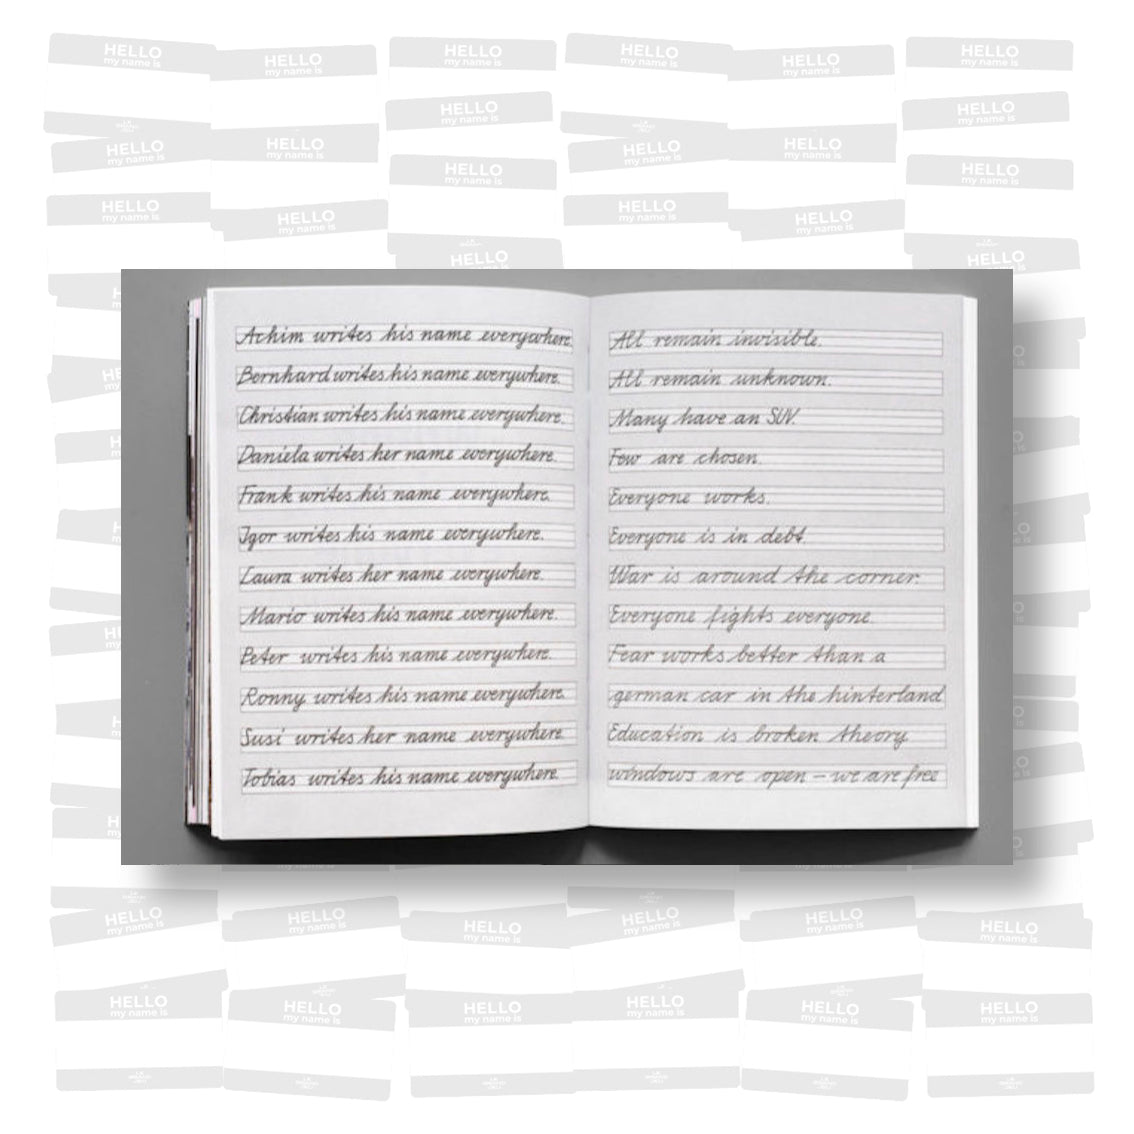 Achim writes his name everywhere.
Bernhard writes his name everywhere.
Christian writes his name everywhere.
Daniela writes her name everywhere.
Frank writes his name everywhere.
Igor writes his name everywhere.
Laura writes her name everywhere.
Mario writes his name everywhere.
Peter writes his name everywhere.
Ronny writes his name everywhere.
Susi writes her name everywhere.
Tobias writes his name everywhere.
All remain invisible.
All remain unknown.
Many have an SUV.
Few are chosen.
Everyone works.
Everyone is in debt.
War is around the corner.
Everyone fights everyone.
Fear works better than a
german car in the hinterland
Education is broken theory
windows are open – we are free
HELLO
my name is